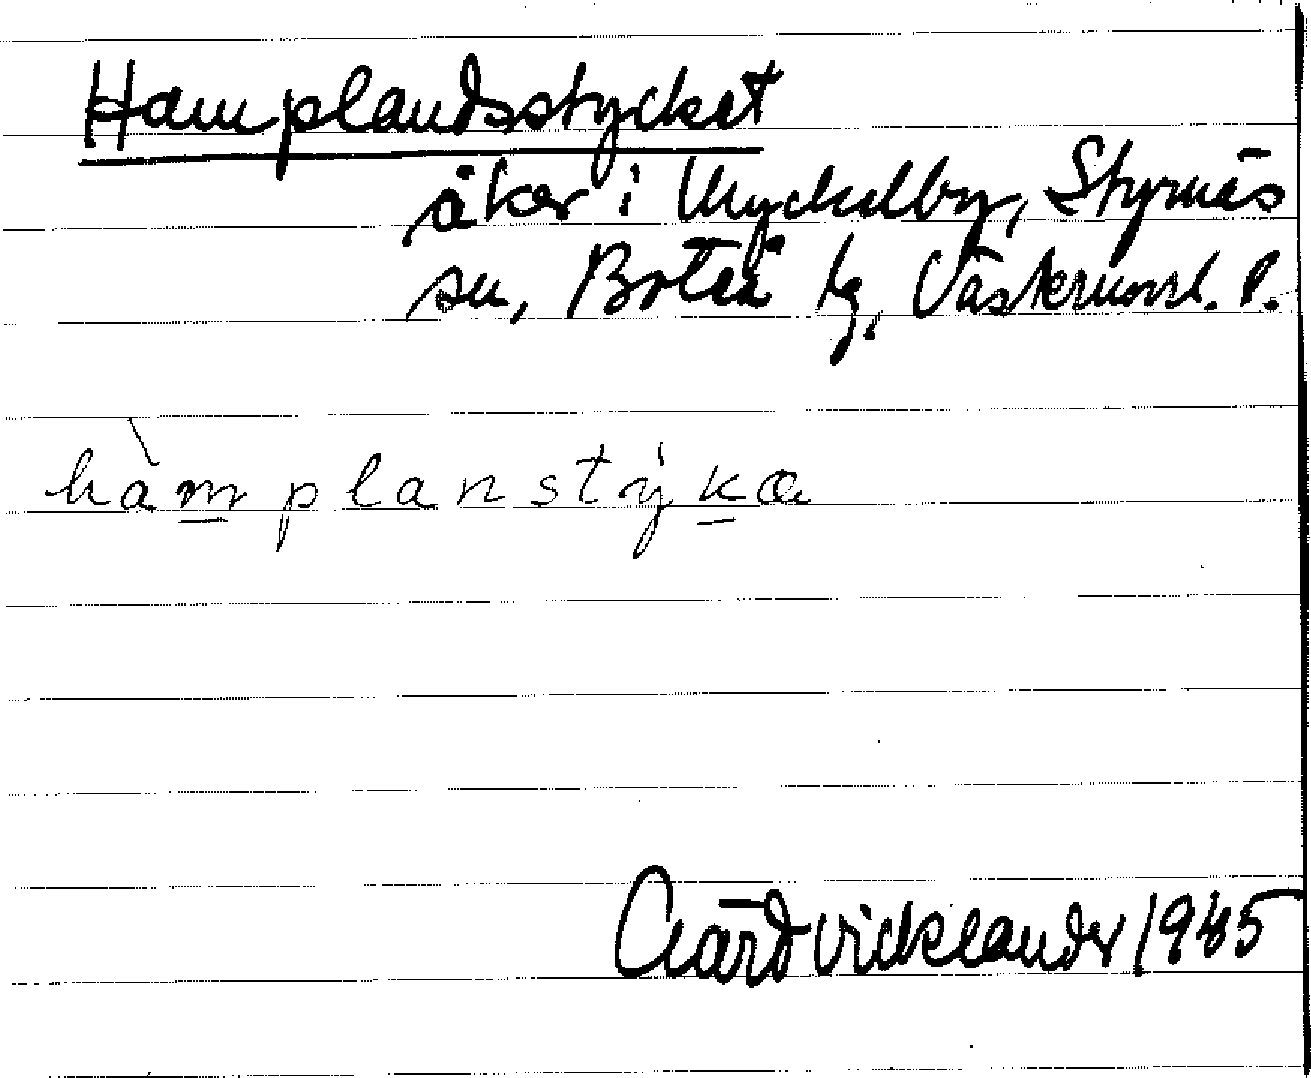 Hamplandsstycket
åker i Myckelby, Styrnäs
sn, Boteå tg, Västernorrl. l.
hàmplanstýka
vicklander 1935